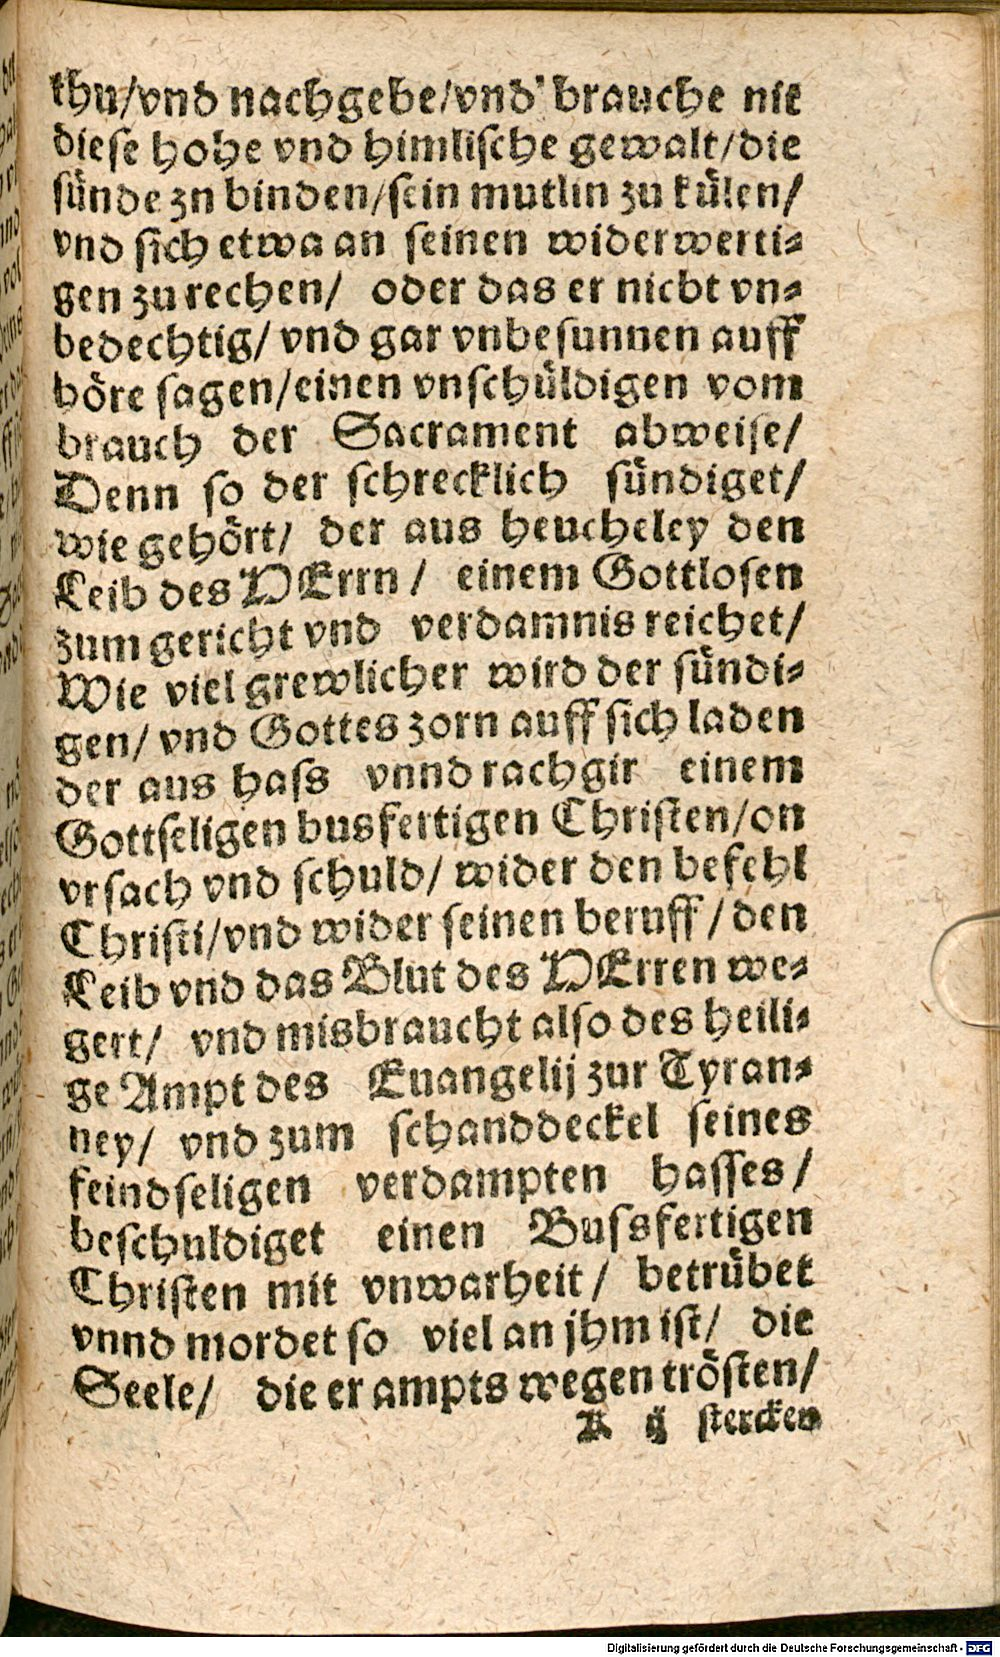 thu/vnd nachgebe/vnd brauche nit
diese hohe vnd himlische gewalt/die
sünde zn binden/sein mutlin zu külen/
vnd sich etwa an seinen widerwerti⸗
gen zu rechen/ oder das er nicht vn⸗
bedechtig/ vnd gar vnbesunnen auff
höre sagen/einen vnschüldigen vom
brauch der Sacrament abweise/
Denn so der schrecklich sündiget/
wie gehört/ der aus heucheley den
Leib des HErrn / einem Gottlosen
zum gericht vnd verdamnis reichet/
Wie viel grewlicher wird der sündi⸗
gen/ vnd Gottes zorn auff sich laden
der aus hass vnnd rachgir einem
Gottseligen busfertigen Christen/on
vrsach vnd schuld/ wider den befehl
Christi/vnd wider seinen beruff / den
Leib vnd das Blut des HErren we⸗
gert/ vnd misbraucht also des heili⸗
ge Ampt des Euangelij zur Tyran⸗
ney/ vnd zum schanddeckel seines
feindseligen verdampten hasses/
beschuldiget einen Bussfertigen
Christen mit vnwarheit/ betrübet
vnnd mordet so viel an jhm ist/ die
Seele/ die er ampts wegen trösten/
K ij stercken
Digitalisierung gefördert durch die Deutsche Forschungsgemeinschaft - DFG